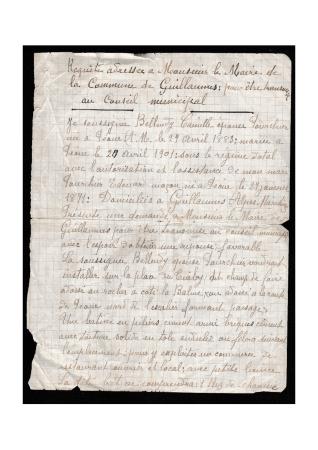 Requête adressée a Monsieur le Maire de
la Commune de Guillaumes: pour être transmise
au Conseil municipal
Je soussignée Bellundy épouse Tourchier
née à Péone A.M. le 29 Avril 1883: mariée a
Péone le 20 Avril 1901: sous le regime Dotal
avec l'autorisation et l'assistance de mon mari
Tourchier Edouard maçon né a Péone le 31 janvier
1871: Domiciliés a Guillaumes Alpes Maritimes
Présente une demande a Monsieur le Maire de
Guillaumes pour être transmise au conseil municipal
avec l'espoir d'obtenir une reponse favorable
La soussignée Bellundy épouse Tourchier voudrait
installer sur la place du champ de foire
adossé au rocher a coté la
de Péone nord de l'escalier formant passage
Une batisse en piliers ciment armé briques ciment
avec toiture solide en tôle ondulée ou
l'emplacement pour y exploiter un commerce de
restaurant et local; avec petite licence
La batisse comprendrait